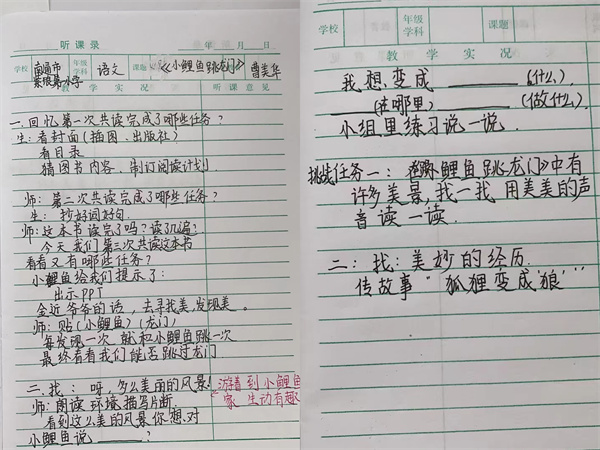 听课录 年 月 日
学校 南通市 紫琅第一小学 年级学科 语文 课题 《小鲤鱼跳龙门》 曹美华
教学实况 听课意见
一.回忆第一次共读完成了哪些任务?
生:看封面(插图、出版社)
看目录
猜图书内容、制订阅读计划
师:第二次共读完成了哪些任务?
生:抄好词好句.
师:这本书读完了吗?读了几遍?
今天我们第三次共读这本书
看看又有哪些任务?
小鲤鱼给我们提示了:
出示PPT
金近爷爷的话,去寻找美,发现美。
师:贴(小鲤鱼)(龙门)
每发现一次,就和小鲤鱼跳一次
最终看看我们能否跳过龙门
二.找:呀,多么美丽的风景
师:朗读环境描写片断.
看到这么美的风景你想对
小鲤鱼说______?
游看到小鲤鱼
家 生动有趣
学校 年级学科 课题
教学实况
我想变成______(什么)
______(在哪里)______(做什么).
小组里练习说一说.
挑战任务一:小鲤鱼跳龙门》中有
许多美景,找一找用美美的声
音读一读.
二:找:美妙的经历.
传故事"狐狸变成'狼'"